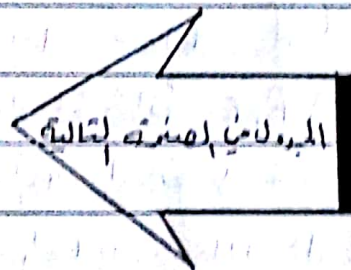 الجدول في الصفحة التالية